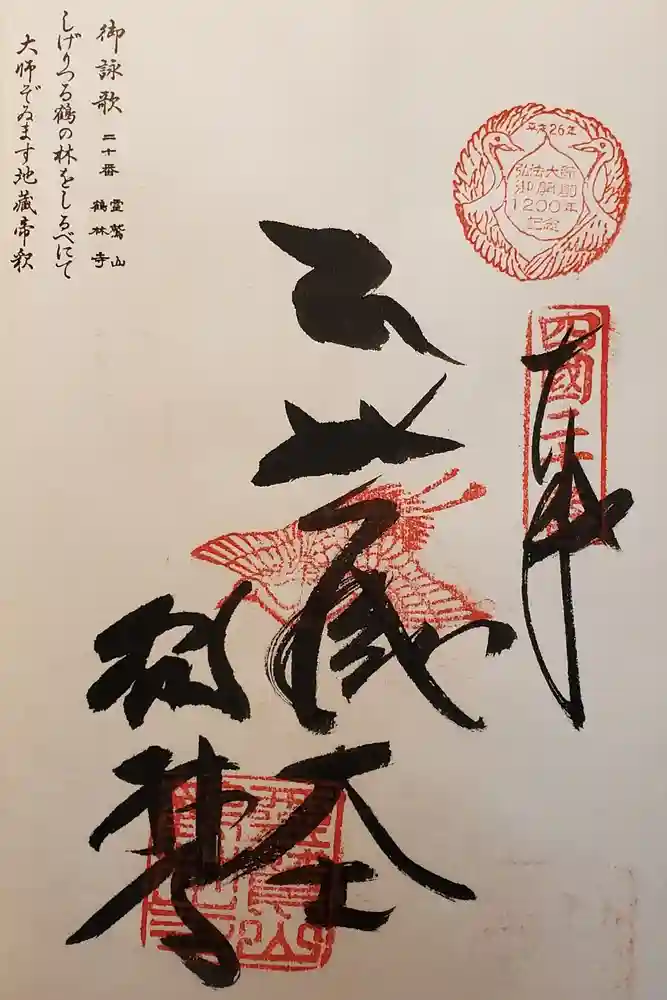 平成26年
弘法大師
御開創
1200年
記念
四國二十番
奉拝
地蔵大士
鶴林寺
御詠歌 二十番 霊鷲山
鶴林寺
しげりつる鶴の林をしるべにて
大師ぞゐます地蔵帝釈